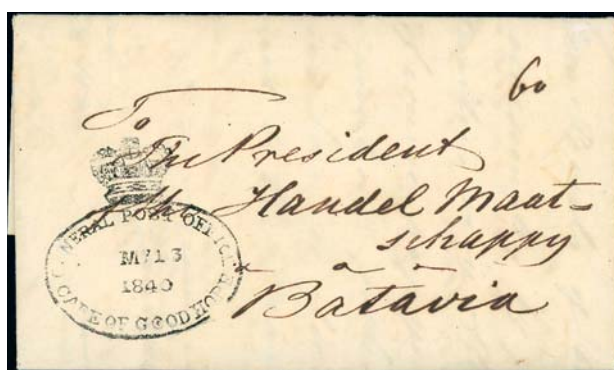 60
To
The President
of the Handel Maat-
schappy
Batavia
GENERAL POST OFFICE
MY 13
1840
CAPE OF GOOD HOPE